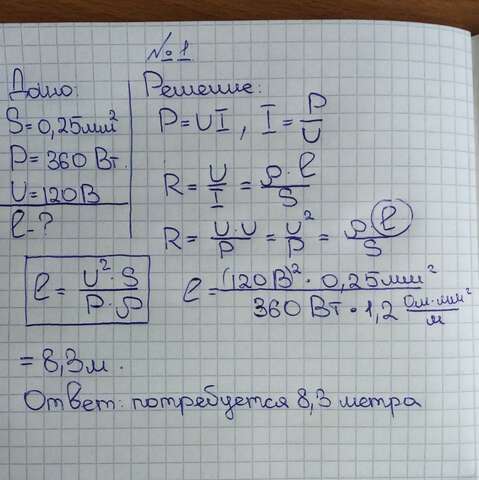 №1
Дано:
S=0,25мм²
P=360Вт.
U=120В
l-?
Решение:
P=UI, I=P/U
R=U/I=ρ·l/S
R=U·U/P=U²/P=ρl/S
l=U²·S/P·ρ
l=(120В)²·0,25мм²/360Вт·1,2 Ом·мм²/м
=8,3м.
Ответ: потребуется 8,3 метра